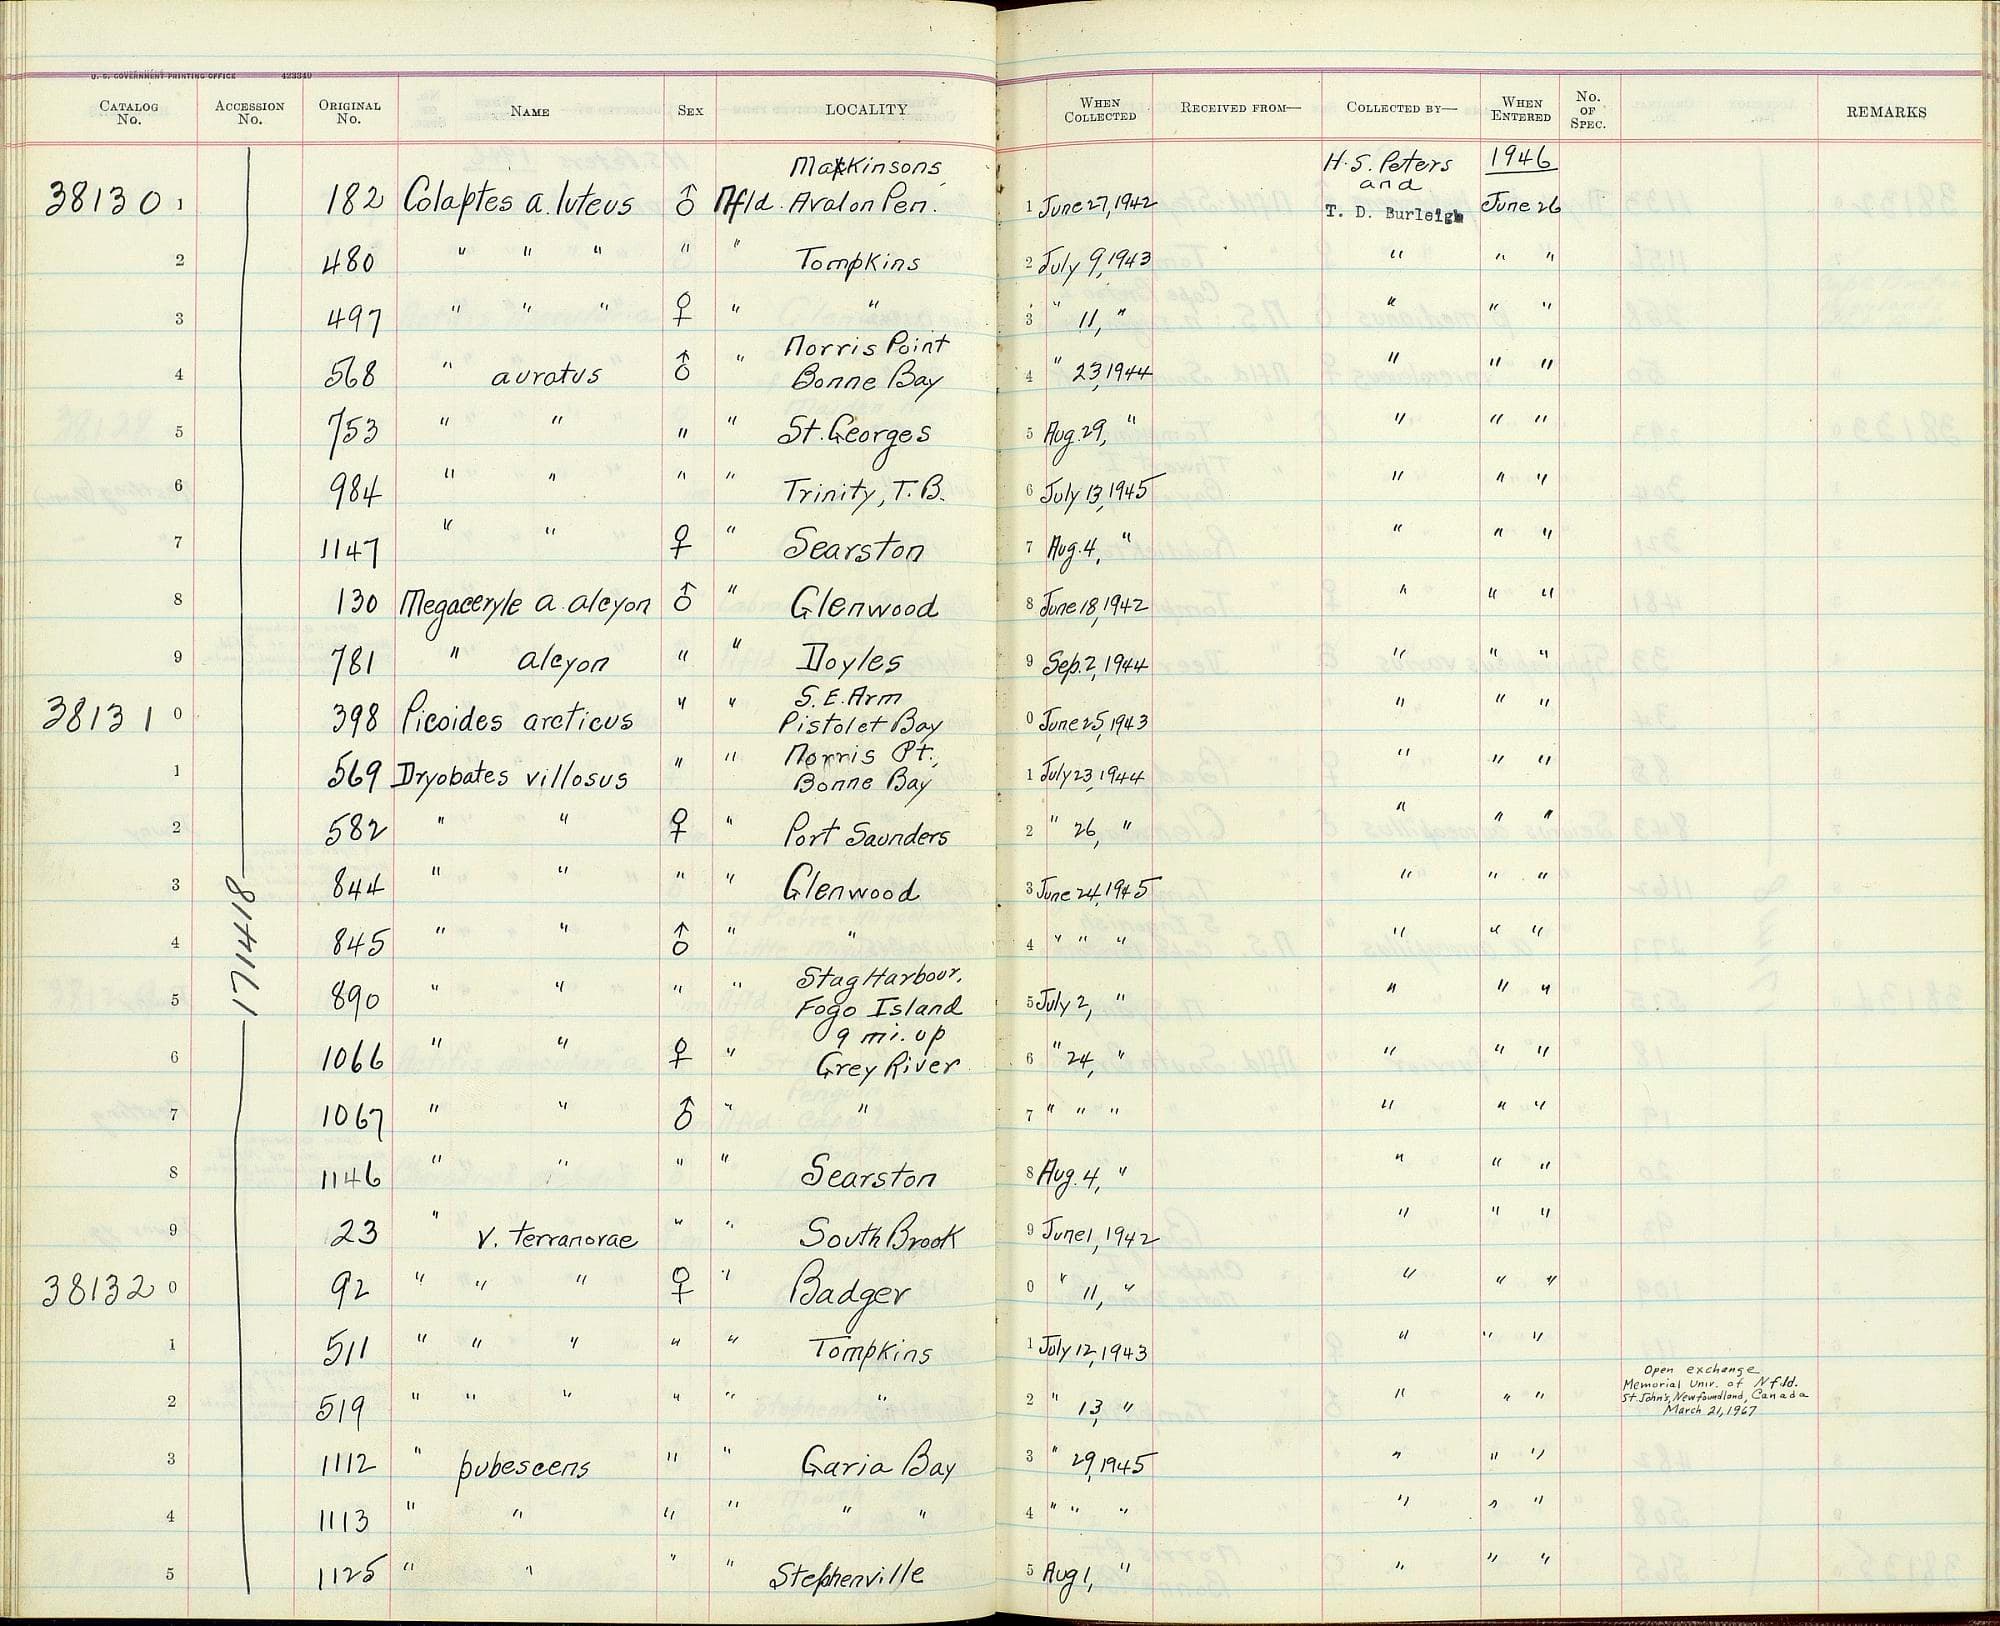 U. S. GOVERNMENT PRINTING OFFICE 423340
CATALOG No. ACCESSION No. ORIGINAL No. NAME SEX LOCALITY WHEN COLLECTED RECEIVED FROM— COLLECTED BY— WHEN ENTERED No. OF SPEC. REMARKS
Mackinsons H. S. Peters 1946
and
38130 1 182 Colaptes a. luteus ♂ Nfld. Avalon Pen. 1 June 27, 1942 T. D. Burleigh June 26
2 480 " " " " " Tompkins 2 July 9, 1943 " " "
3 497 " " " ♀ " " 3 " 11, " " " "
Norris Point
4 568 " auratus ♂ " Bonne Bay 4 " 23, 1944 " " "
5 753 " " " " St. Georges 5 Aug. 29, " " " "
6 984 " " " " Trinity, T.B. 6 July 13, 1945 " " "
7 1147 " " ♀ " Searston 7 Aug. 4, " " " "
8 130 Megaceryle a. alcyon ♂ " Glenwood 8 June 18, 1942 " " "
9 781 " alcyon " " Doyles 9 Sep. 2, 1944 " " "
S. E. Arm
38131 0 398 Picoides arcticus " " Pistolet Bay 0 June 25, 1943 " " "
Norris Pt.,
1 569 Dryobates villosus " " Bonne Bay 1 July 23, 1944 " " "
2 582 " " ♀ " Port Saunders 2 " 26, " " " "
3 844 " " " " Glenwood 3 June 24, 1945 " " "
4 845 " " ♂ " " 4 " " " " " "
Stag Harbour,
5 890 " " " " Fogo Island 5 July 2, " " " "
9 mi. up
6 1066 " " ♀ " Grey River 6 " 24, " " " "
7 1067 " " ♂ " " 7 " " " " " "
8 1146 " " " " Searston 8 Aug. 4, " " " "
9 23 " v. terranovae " " South Brook 9 June 1, 1942 " " "
38132 0 92 " " " ♀ " Badger 0 " 11, " " " "
1 511 " " " " " Tompkins 1 July 12, 1943 " " "
Open exchange
Memorial Univ. of Nfld.
St. John's, Newfoundland, Canada
March 21, 1967
2 519 " " " " " " 2 " 13, " " " "
3 1112 " pubescens " " Garia Bay 3 " 29, 1945 " " "
4 1113 " " " " " " 4 " " " " " "
5 1125 " " " " Stephenville 5 Aug 1, " " " "
171418